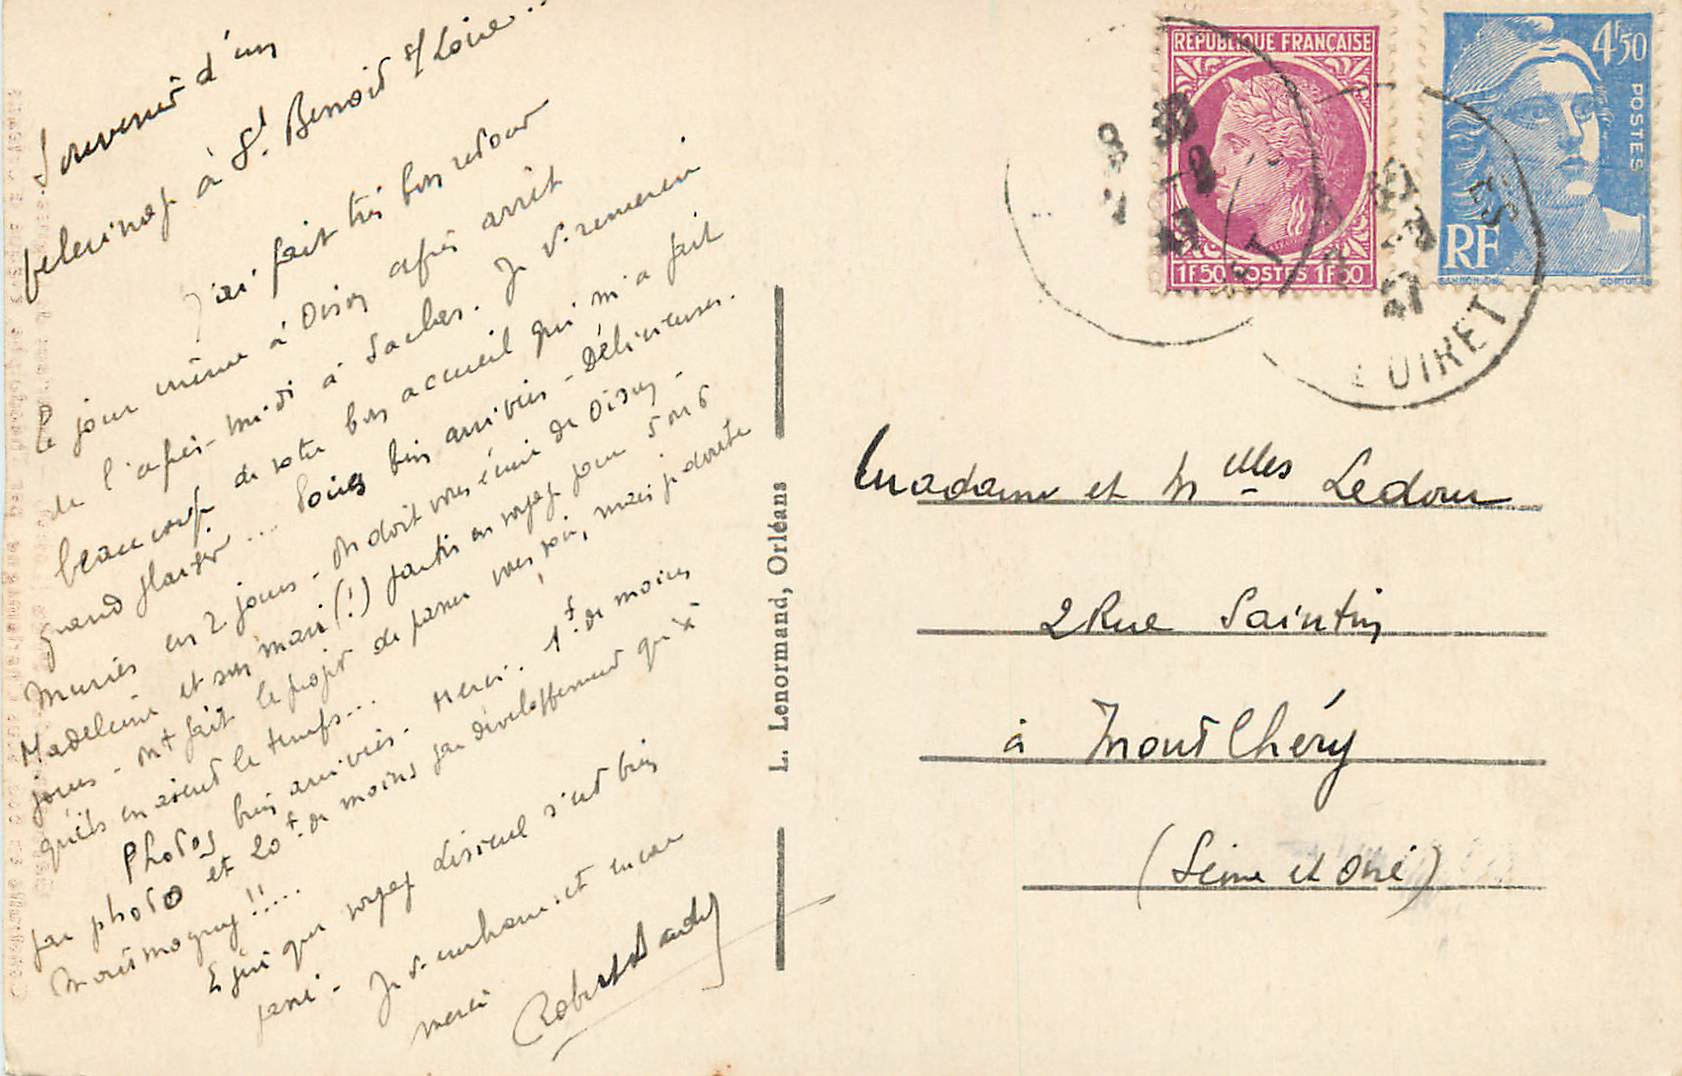 Souvenir d'un
pelerinage à St. Benoit s/ Loire...
J'ai fait très bon retour
le jour même à Oison après arrêt
de l'après-midi à Saclas. Je v. remercie
beaucoup de votre bon accueil qui m'a fait
grand plaisir... Poires bien arrivées - Délicieuses.
Mûries en 2 jours - On doit vous écrire de Oison -
Madeleine et son mari (!) partis en voyage pour 5 ou 6
jours - ont fait le projet de passer vous voir, mais je doute
qu'ils en aient le temps...
Photos bien arrivées. Merci. 1f. de moins
par photo et 20f. de moins par développement qu'à
Montmagny!!...
Espère que voyage s'est bien
passé - Je v. embrasse et encore
merci
Robert
L. Lenormand, Orléans
REPUBLIQUE FRANÇAISE
1F50 POSTES 1F50
4F50
POSTES
RF
LOIRET
Madame et Mlles Ledoux
2 Rue Saintin
à Montlhéry
(Seine et Oise)